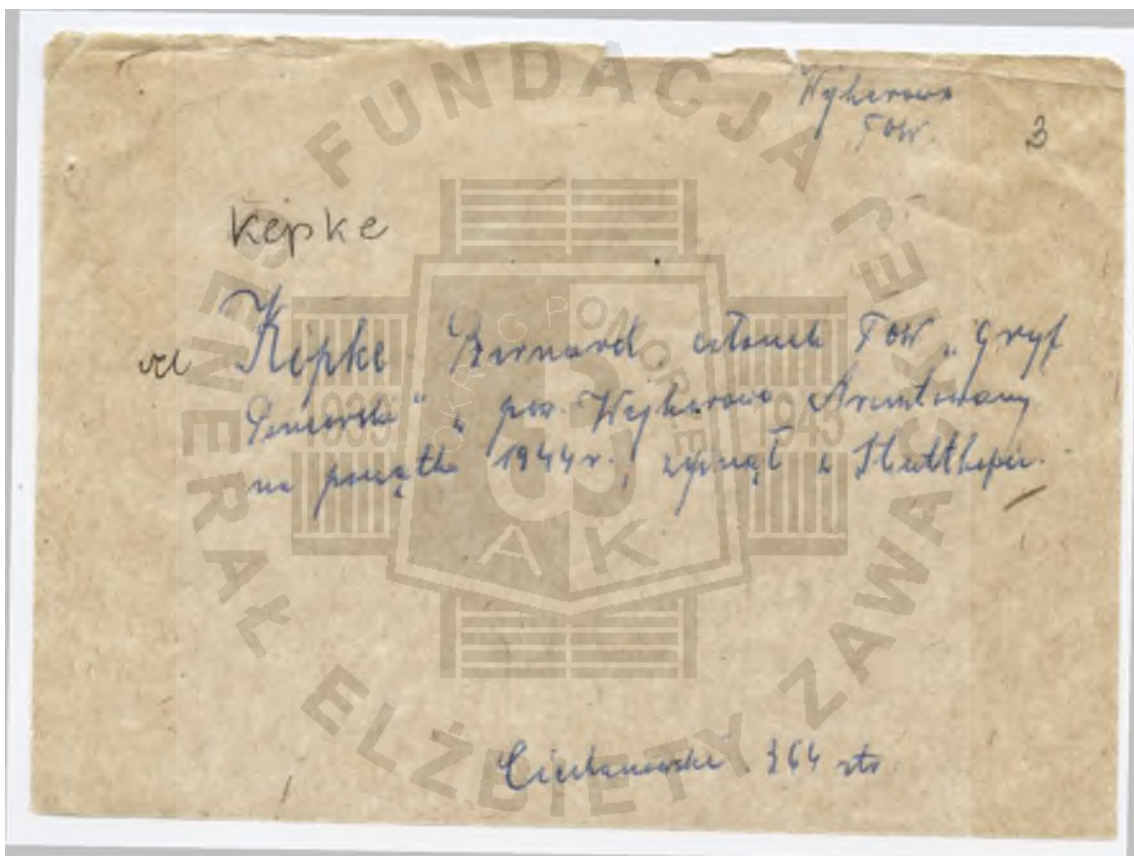 Wejherowo
TOW. 3
Kepke
vel Kepke Bernard, członek TOW „Gryf
Pomorski" w pow. Wejherowo. Aresztowany
na początku 1944 r., zginął w Stutthofie.
Ciechanowski 364 str
FUNDACJA GENERAŁ ELŻBIETY ZAWACKIEJ
OKRĘG POMORZE
1939 1945
AK